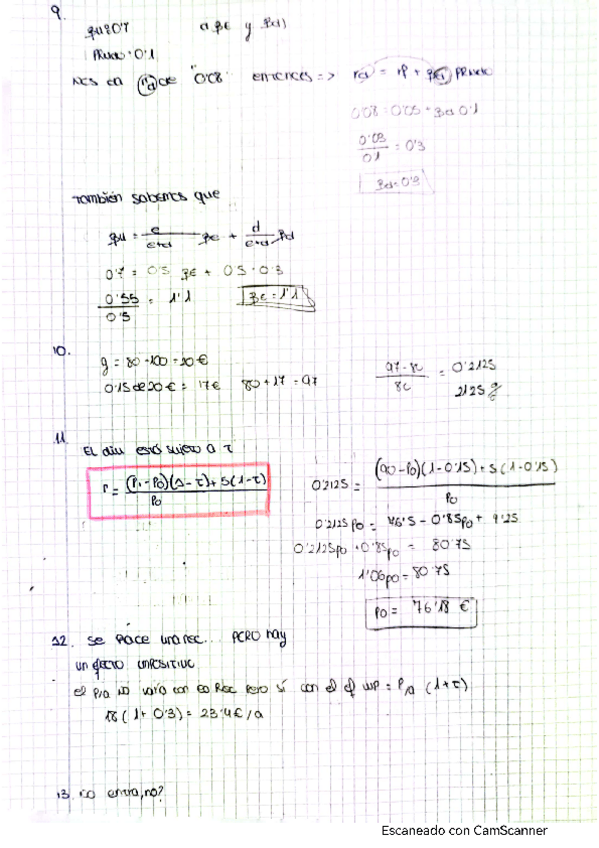 9.
βu=0'7 a βE y βd)
PRMdo=0'1
NCS da rd de "0'08" entonces => rd = rf + βd PRMdo
0'08 = 0'05 + βd 0'1
0'03
0'1 = 0'3
βd=0'3
También sabemos que
βu = e/e+d βE + d/e+d βd
0'7 = 0'5 βE + 0'5 · 0'3
0'55
0'5 = 1'1 βE = 1'1
10.
g = 80 - 100 = 20 €
0'15 de 20 € = 17 € 80 + 17 = 97
97-80
80 = 0'2125
21'25 %
11.
El div está sujeto a τ
r = (P1-P0)(1-τ)+5(1-τ)
P0
0'2125 = (90-P0)(1-0'15)+5(1-0'15)
P0
0'2125p0 = 76'5 - 0'85p0 + 4'25
0'2125p0 + 0'85p0 = 80'75
1'06p0 = 80'75
P0 = 76'18 €
12. Se hace una rec... PERO hay
un efecto impositivo
el P/a no varía con la Rec pero sí con el ef imp = P/a (1+τ)
18 (1+0'3) = 23'4 €/a
13. no entra, no?
Escaneado con CamScanner